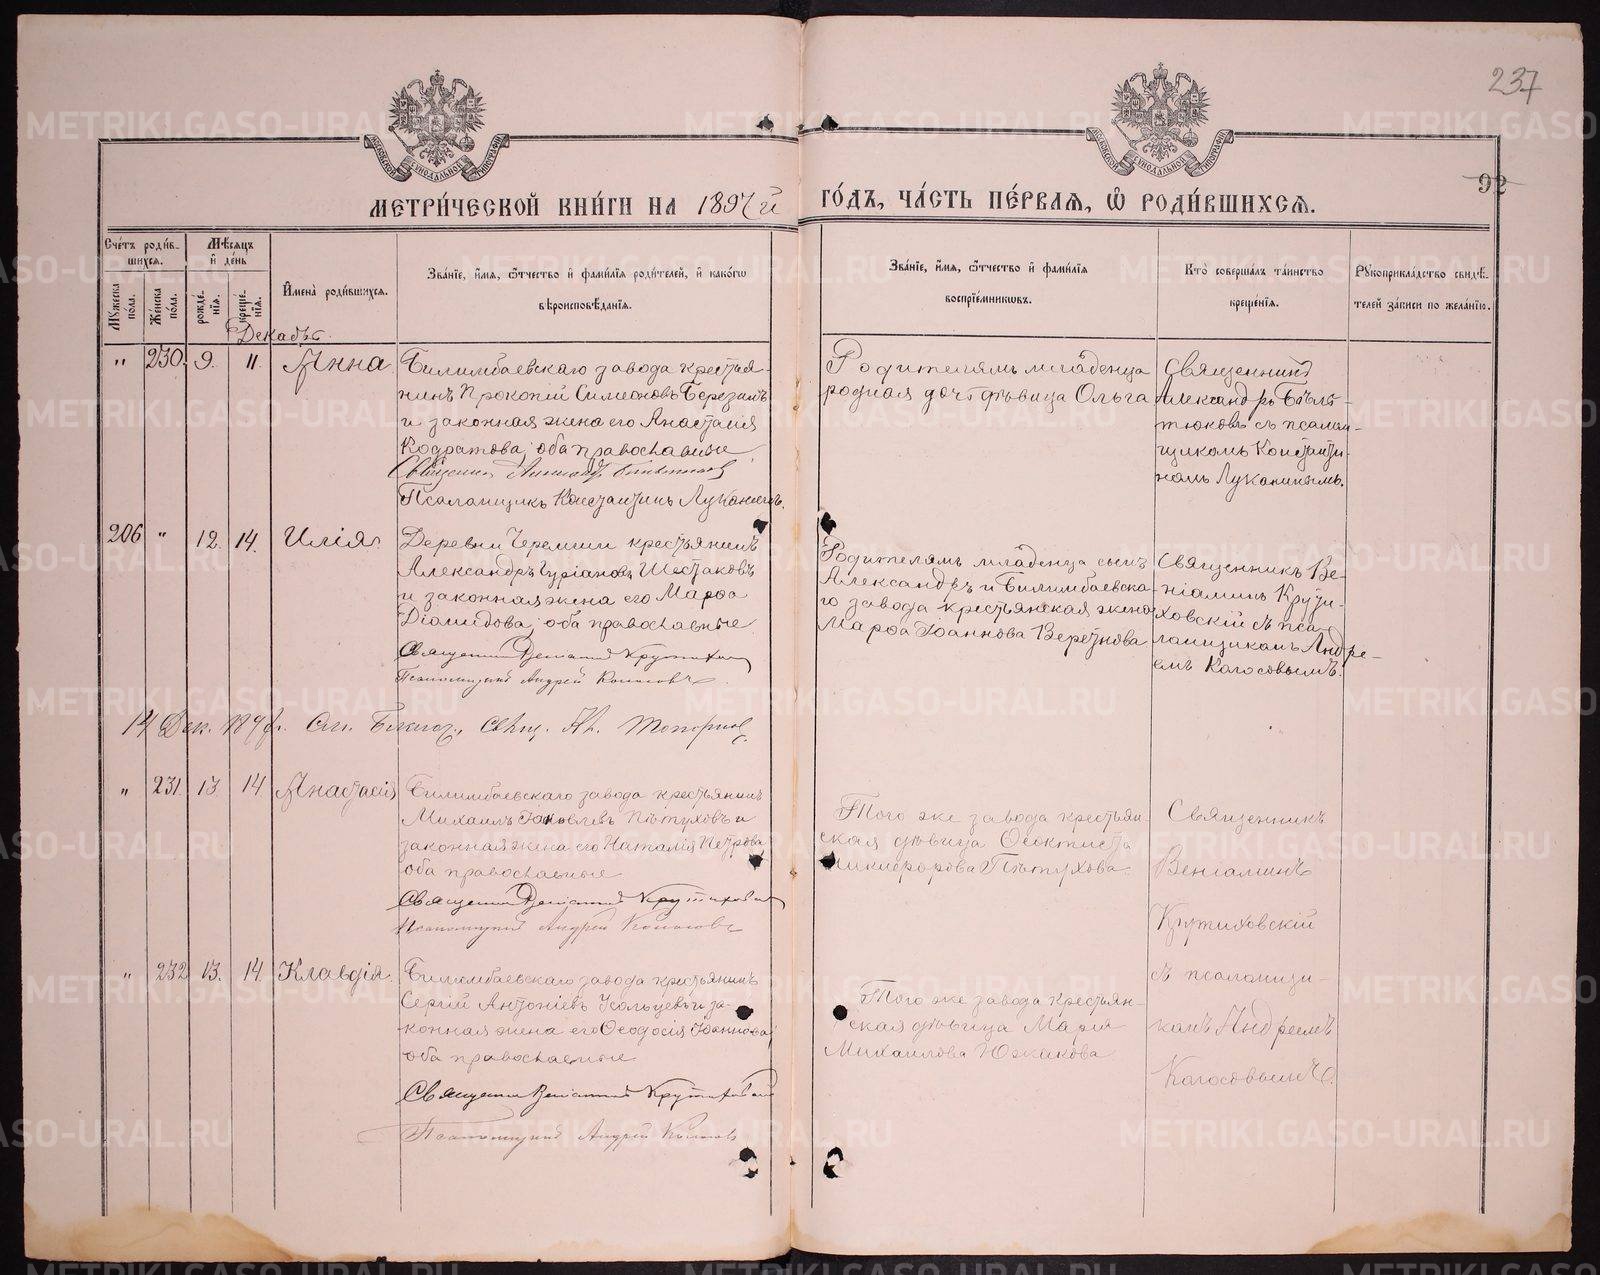 237
92
МЕТРИ́ЧЕСКОЙ КНИ́ГИ НА 1897 й ГО́ДЪ, ЧА́СТЬ ПЕ́РВАЯ, Ѡ҆ РОДИ́ВШИХСЯ.
Сче́тъ роди́в-
шихся.
Мꙋ́жеска по́ла.
Же́нска по́ла.
Мѣ́сяцъ и҆ де́нь
рожде́-
нїя.
креще́-
нїя.
И҆мена̀ роди́вшихся.
Зва́нїе, и҆́мя, ѻ҆́тчество и҆ фами́лїя роди́телей, и҆ како́гѡ
вѣроисповѣ́данїя.
Зва́нїе, и҆́мя, ѻ҆́тчество и҆ фами́лїя
воспрїе́мникѡвъ.
Кто̀ соверша́лъ та́инство
креще́нїя.
Рꙋкоприкла́дство свидѣ́-
телей за́писи по жела́нїю.
Декабь
" 230. 9. 11. Анна
Билимбаевскаго завода крестья-
нинъ Прокопій Симеоновъ Березинъ
и законная жена его Анастасія
Кодратова, оба православные
Псаломщикъ Константинъ Луканинъ.
Родителямъ младенца
родная дочь дѣвица Ольга
Священник
Александръ Бѣль-
тюковъ съ псалом-
щикомъ Константи-
номъ Луканинымъ.
206 " 12. 14. Илія.
Деревни Черемши крестьянинъ
Александръ Гуріановъ Шестаковъ
и законная жена его Марѳа
Діомидова, оба православные
Священникъ Веніаминъ Крутиховскій
Псаломщикъ Андрей Колосовъ.
Родителямъ младенца сынъ
Александръ и Билимбаевска-
го завода крестьянская жена
Марѳа Іоаннова
Священникъ Ве-
ніаминъ Крути-
ховскій съ пса-
ломщикомъ Андре-
емъ Колосовымъ.
14 Дек. 1897 г. Свящ. Ал. Топорков
" 231 13. 14. Анастасія
Билимбаевскаго завода крестьянинъ
Михаилъ Іаковлевъ Пѣтуховъ и
законная жена его Наталія Петрова,
оба православные
Священникъ Веніаминъ Крутиховскій
Псаломщикъ Андрей Колосовъ
Того же завода крестьян-
ская дѣвица Ѳеоктиста
Никифорова Пѣтухова
Священникъ
Веніаминъ
Крутиховскій
съ псаломщи-
комъ Андреемъ
Колосовымъ.
" 232 13. 14. Клавдія.
Билимбаевскаго завода крестьянинъ
Сергій Антоніевъ Кольцевъ и за-
конная жена его Ѳеодосія Іоаннова,
оба православные
Священникъ Веніаминъ Крутиховскій
Псаломщикъ Андрей Колосовъ
Того же завода крестьян-
ская дѣвица Марія
Михаилова Южакова
METRIKI.GASO-URAL.RU